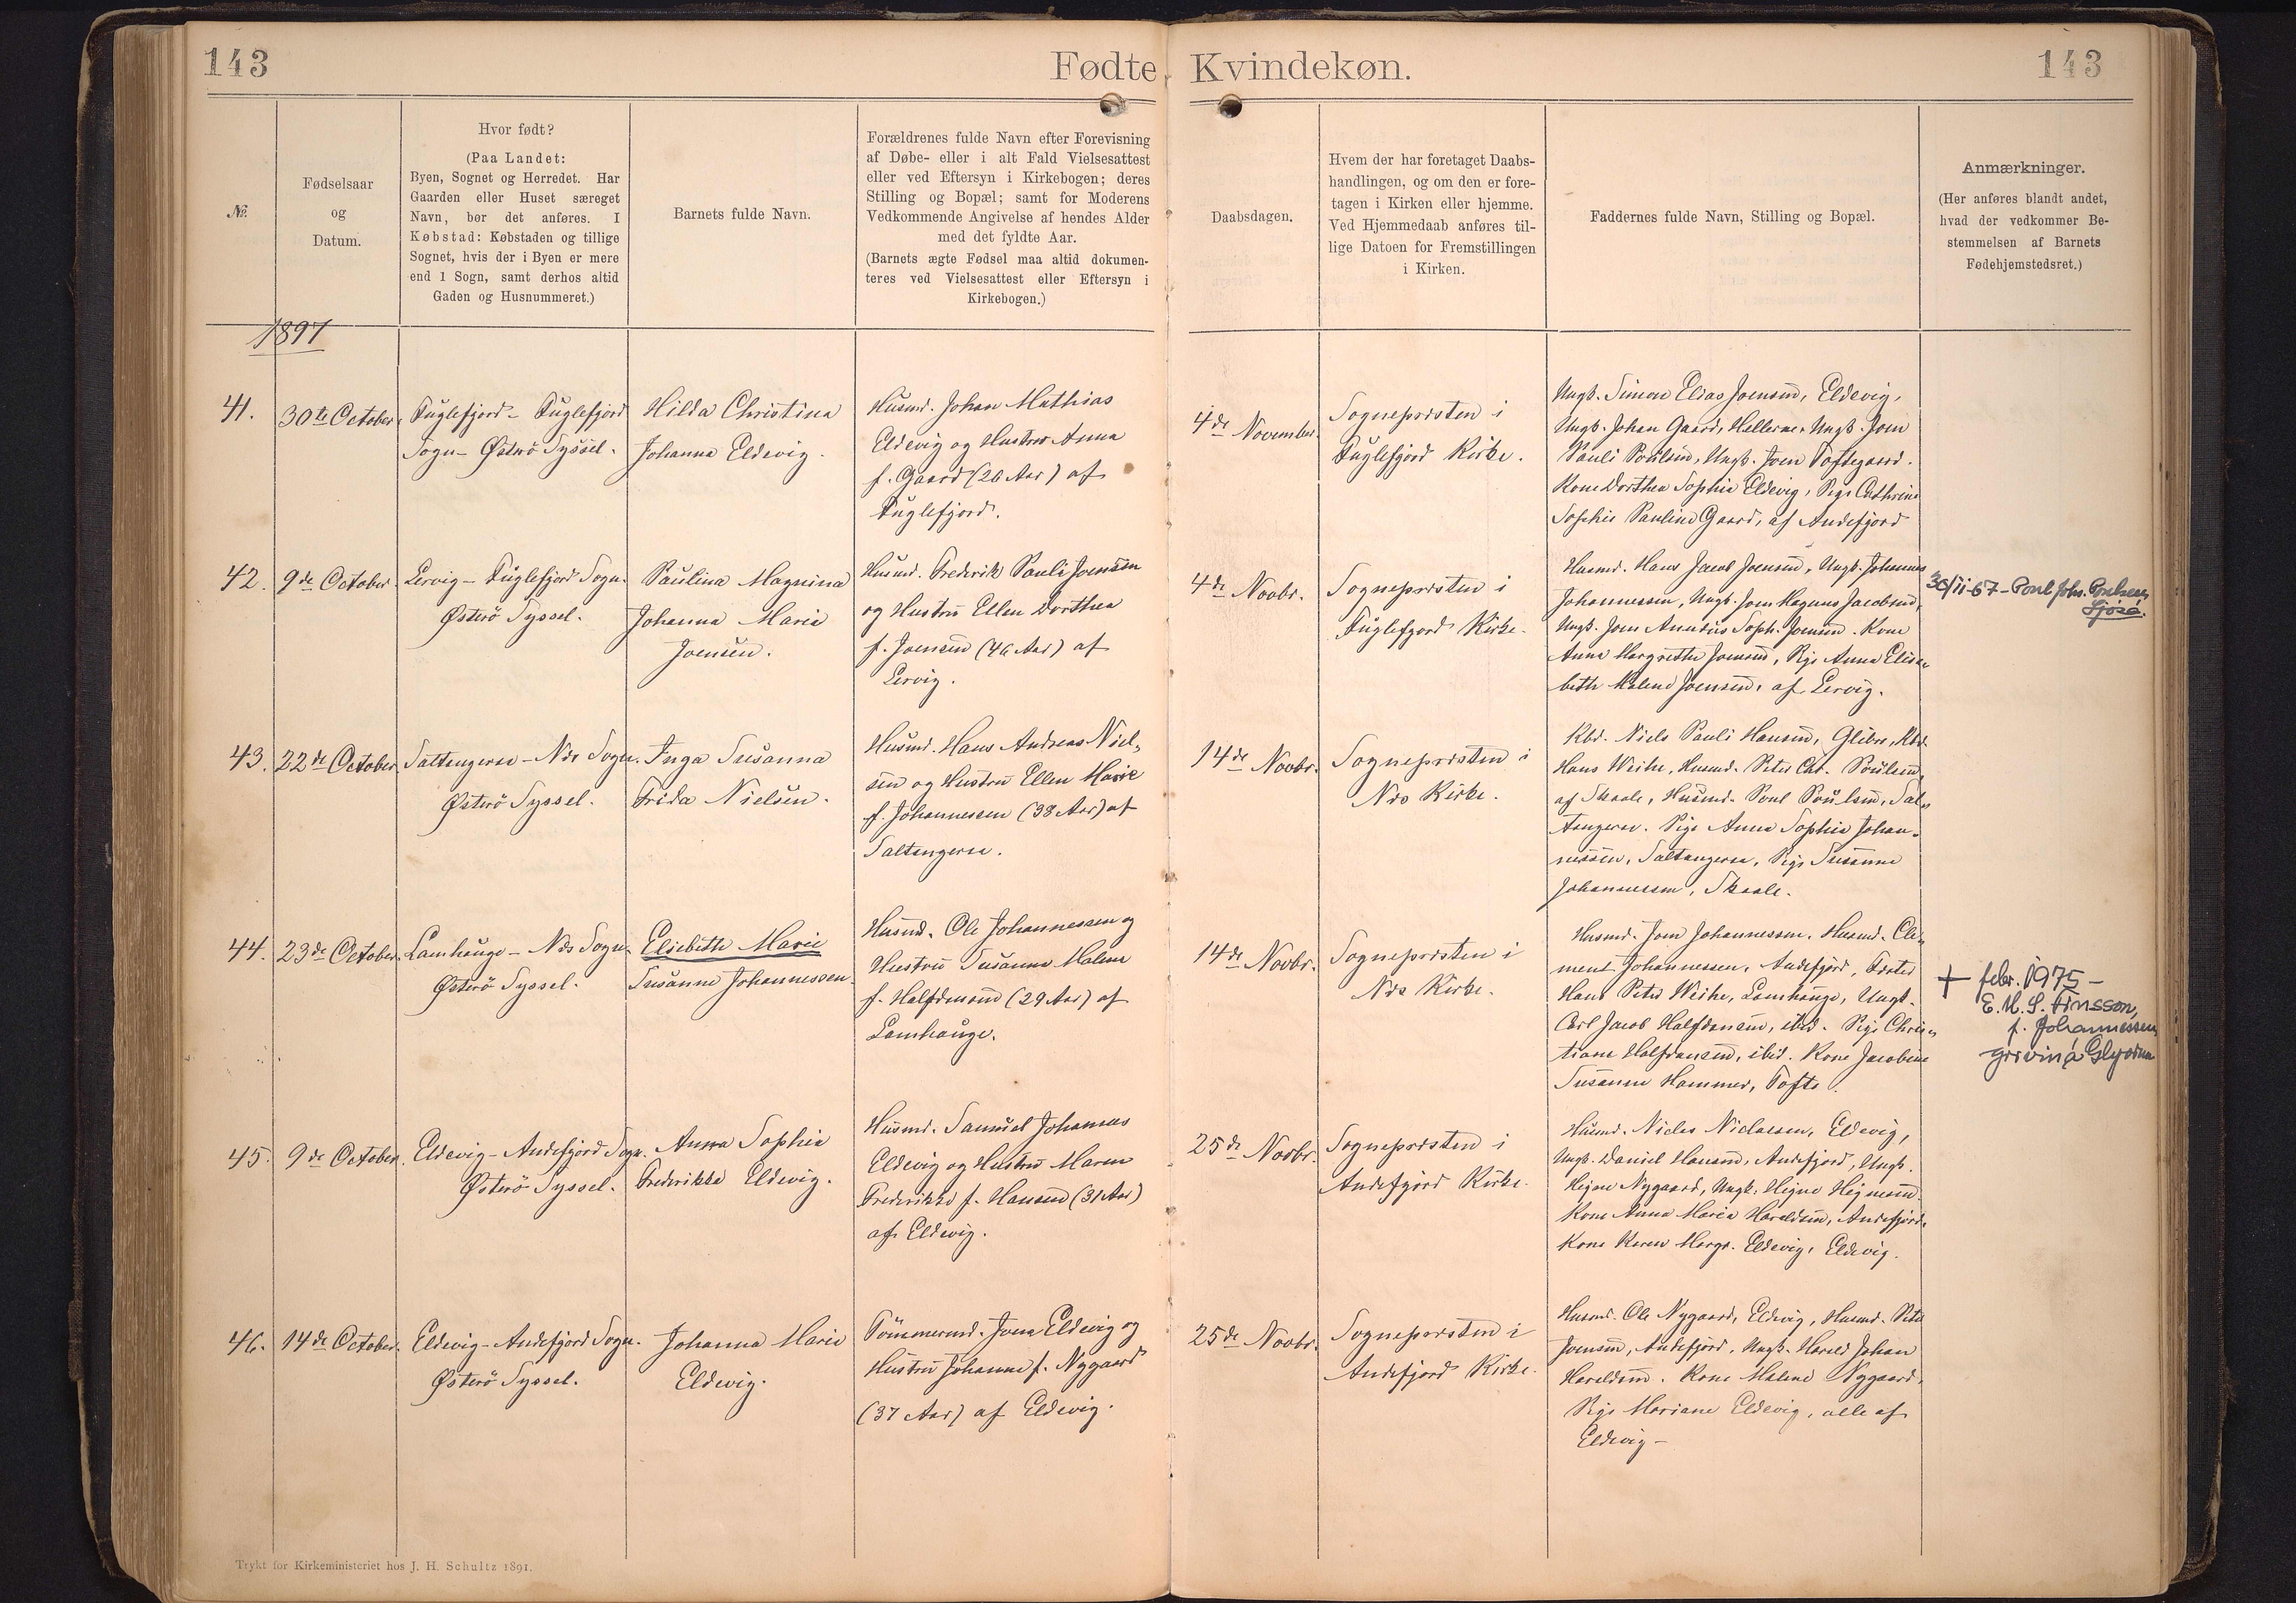 143
Fødte Kvindekøn.
143
№
Fødselsaar
og
Datum.
Hvor født?
(Paa Landet:
Byen, Sognet og Herredet. Har
Gaarden eller Huset særeget
Navn, bør det anføres. I
Købstad: Købstaden og tillige
Sognet, hvis der i Byen er mere
end 1 Sogn, samt derhos altid
Gaden og Husnummeret.)
Barnets fulde Navn.
Forældrenes fulde Navn efter Forevisning
af Døbe- eller i alt Fald Vielsesattest
eller ved Eftersyn i Kirkebogen; deres
Stilling og Bopæl; samt for Moderens
Vedkommende Angivelse af hendes Alder
med det fyldte Aar.
(Barnets ægte Fødsel maa altid dokumen-
teres ved Vielsesattest eller Eftersyn i
Kirkebogen.)
Daabsdagen.
Hvem der har foretaget Daabs-
handlingen, og om den er fore-
tagen i Kirken eller hjemme.
Ved Hjemmedaab anføres til-
lige Datoen for Fremstillingen
i Kirken.
Faddernes fulde Navn, Stilling og Bopæl.
Anmærkninger.
(Her anføres blandt andet,
hvad der vedkommer Be-
stemmelsen af Barnets
Fødehjemstedsret.)
1897
41.
30te October.
Fuglefjord - Fuglefjord
Sogn - Østerö Syssel.
Hilda Christina
Johanna Eldevig.
Husmd. Johan Mathias
Eldevig og Hustru Anna
f. Gaard (26 Aar) af
Fuglefjord.
4de November.
Sognepresten i
Fuglefjord Kirke.
Ungk. Simon Elias Joensen, Eldevig,
Ungk. Johan Gaard, Hellerne, Ungk. Joen
Pauli Poulsen, Ungk. Joen Toftegaard.
Kone Dorthea Sophie Eldevig, Pige Cathrine
Sophie Pauline Gaard, af Andefjord
42.
9de October.
Lervig - Fuglefjord Sogn.
Østerö Syssel.
Paulina Magnina
Johanna Maria
Joensen.
Husmd. Frederik Pauli Joensen
og Hustru Ellen Dorthea
f. Joensen (46 Aar) af
Lervig.
4de Novbr.
Sognepresten i
Fuglefjord Kirke.
Husmd. Hans Jacob Joensen, Ungk. Johannes
Johannessen, Ungk. Joen Magnus Jacobsen,
Ungk. Joen Amudius Soph. Joensen. Kone
Anna Margrethe Joensen, Pige Anna Elisa-
beth Malene Joensen, af Lervig.
30/11-67 - Poul Joh. Poulsen,
43.
22de October
Saltangeraa - Næs Sogn.
Østerö Syssel.
Inga Susanna
Frida Nielsen.
Husmd. Hans Andreas Niel-
sen og Hustru Ellen Marie
f. Johannessen (38 Aar) af
Saltangeraa.
14de Novbr.
Sognepresten i
Næs Kirke.
Kbd. Niels Pauli Hansen, Glibre, Kbd.
Hans Weihe, Husmd. Peter Chr. Poulsen,
af Skaale, Husmd. Poul Poulsen, Sal-
tangeraa. Pige Anna Sophia Johan-
nessen, Saltangeraa, Pige Susanna
Johannessen, Skaale.
44.
23de October.
Lamhauge - Næs Sogn.
Østerö Syssel.
Elsebeth Marie
Susanne Johannessen.
Husmd. Ole Johannessen og
Hustru Susanne Malene
f. Halfdansen (29 Aar) af
Lamhauge.
14de Novbr.
Sognepresten i
Næs Kirke.
Husmd. Joen Johannessen, Husmd. Cle-
ment Johannessen, Andefjord, Fæster
Hans Peter Weihe, Lamhauge, Ungk.
Carl Jacob Halfdansen, ibd. Pige Chris-
tiane Halfdansen, ibid. Kone Jacobine
Susanne Hammer, Tofte.
+ febr. 1975 -
E. M. S.
f. Johannessen,
grivin á Glyvrum
45.
9de October.
Eldevig - Andefjord Sogn.
Østerö Syssel.
Anna Sophia
Frederikka Eldevig.
Husmd. Samuel Johannes
Eldevig og Hustru Maren
Frederikke f. Hansen (31 Aar)
af Eldevig.
25de Novbr.
Sognepresten i
Andefjord Kirke.
Husmd. Niels Niclassen, Eldevig,
Ungk. Daniel Hansen, Andefjord, Ungk.
Højne Nygaard, Ungk. Højne Højnesen.
Kone Anna Maria Haraldsen, Andefjord,
Kone Karen Margr. Eldevig, Eldevig.
46.
14de October.
Eldevig - Andefjord Sogn.
Østerö Syssel.
Johanna Marie
Eldevig.
Tömmermd. Jona Eldevig og
Hustru Johanne f. Nygaard
(37 Aar) af Eldevig.
25de Novbr.
Sognepresten i
Andefjord Kirke.
Husmd. Ole Nygaard, Eldevig, Husmd. Peter
Joensen, Andefjord, Ungk. Harald Johan
Haraldsen. Kone Malene Nygaard,
Pige Mariane Eldevig, alle af
Eldevig -
Trykt for Kirkeministeriet hos J. H. Schultz 1891.